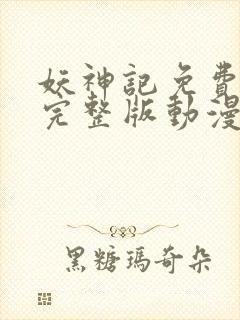 妖神記免費
完整版動漫
黑糖瑪奇朵